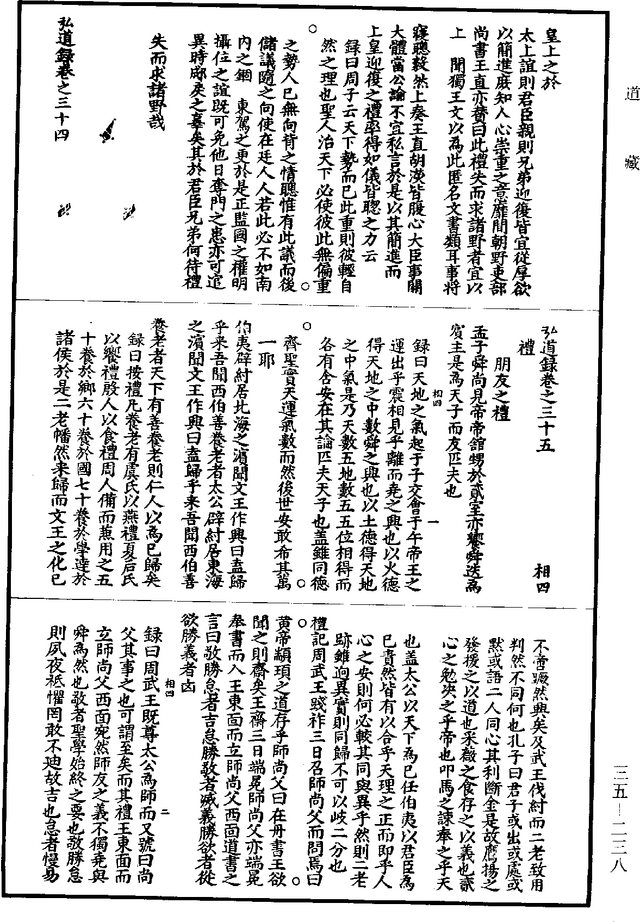 道藏
皇上之於
太上誼則君臣親則兄弟迎復皆宜從厚欲
以簡進展知人心崇重之意靡間朝野吏部
尚書王直亦贊曰此禮失而求諸野者宜以
上聞獨王文以為此匿名文書類耳事將
寢聰毅然上奏王直胡濙皆腹心大臣事關
大體當公論不宜私言於是以其簡進而
上皇迎復之禮率得如儀皆聰之力云
録曰周子云天下勢而已此重則彼輕自
然之理也聖人治天下必使彼此無偏重
之勢人已無向背之情聰惟有此議而後
儲議隨之向使在廷人人若此必不如南
內之錮東駕之更於是正監國之權明
攝位之誼既可免他日奪門之患亦可逭
異時郕戾之辜矣其於君臣兄弟何待禮
失而求諸野哉
弘道録卷之三十四
弘道録卷之三十五
相四
禮
朋友之禮
孟子舜尚見帝帝館甥於貳室亦饗舜迭為
賓主是為天子而友匹夫也
録曰天地之氣起于子交會于午帝王之
運出乎震相見乎離而堯之興也以火德
得天地之中數舜之興也以土德得天地
之中氣是乃天數五地數五五位相得而
各有合安在其論匹夫天子也蓋雖同德
齊聖實天運氣數而然後世安敢希其萬
一耶
伯夷辟紂居北海之濱聞文王作興曰盍歸
乎來吾聞西伯善養老者太公辟紂居東海
之濱聞文王作興曰盍歸乎来吾聞西伯善
養老者天下有善養老則仁人以為已歸矣
録曰按禮凡養老有虞氏以燕禮夏后氏
以饗禮殷人以食禮周人備而兼用之五
十養於鄉六十養於國七十養於學達於
諸侯於是二老幡然来歸而文王之化已
不啻蹶然興矣及武王伐紂而二老致用
判然不同何也孔子曰君子或出或處或
默或語二人同心其利斷金是故鷹揚之
發援之以道也采薇之食存之以義也貳
心之勉決之乎帝也叩馬之諫奉之乎天
也蓋太公以天下為已任伯夷以君臣為
已責然皆有以合乎天理之正而即乎人
心之安則何必較其同與異乎然則二老
跡雖逈異實則同歸不可以歧二分也
禮記周武王踐祚三日召師尚父而問焉曰
黄帝顓頊之道存乎師尚父曰在丹書王欲
聞之則齋矣王齋三日端冕師尚父亦端冕
奉書而入王東面而立師尚父西面道書之
言曰敬勝怠者吉怠勝敬者滅義勝欲者從
欲勝義者凶
録曰周武王既尊太公為師而又號曰尚
父其事之也可謂至矣而其禮王東面而
立師尚父西面宛然師友之義不獨堯與
舜為然也敬者聖學始終之要也敬勝怠
則夙夜祗懼罔敢不廸故吉也怠者慢易
三五—二三八